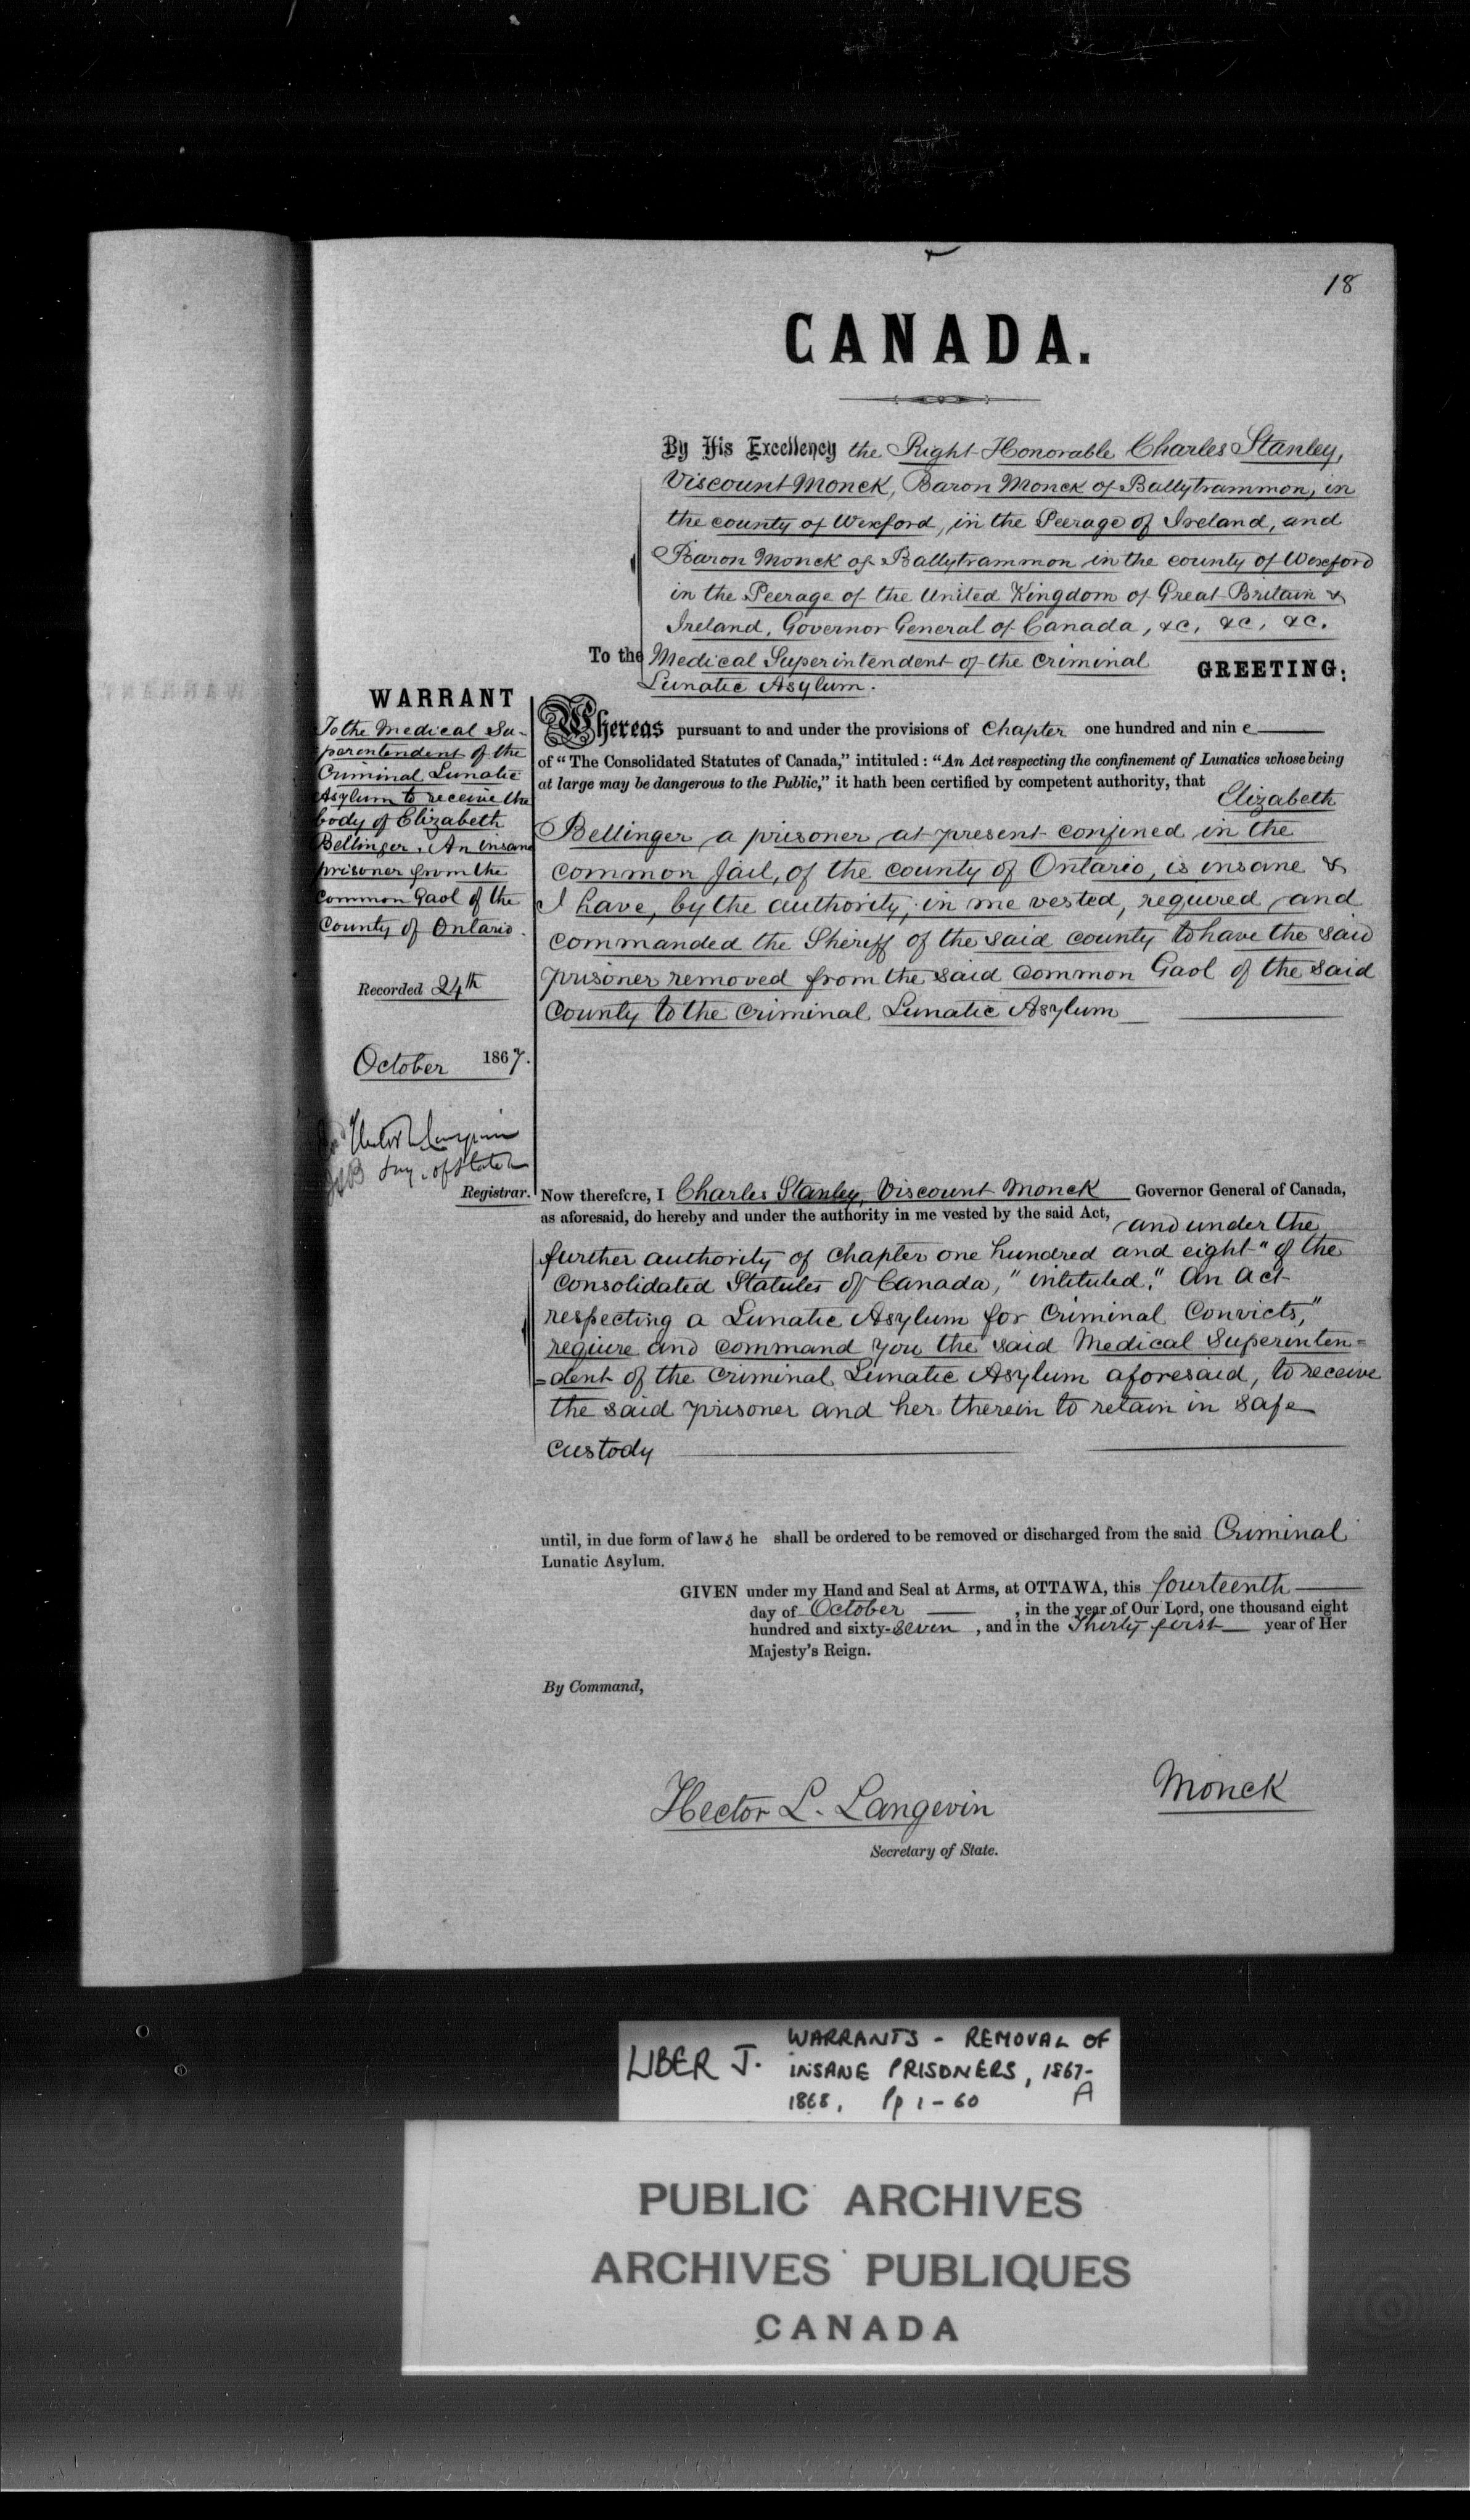 18
CANADA.
By His Excellency the Right Honorable Charles Stanley,
Viscount Monck, Baron Monck of Ballytrammon, in
the county of Wexford, in the Peerage of Ireland, and
Baron Monck of Ballytrammon in the county of Wexford
in the Peerage of the United Kingdom of Great Britain &
Ireland, Governor General of Canada, &c, &c, &c.
To the Medical Superintendent of the Criminal
Lunatic Asylum.
GREETING:
WARRANT
To the Medical Su-
perentendent of the
Criminal Lunatic
Asylum to receive the
body of Elizabeth
Bellinger. An insane
prisoner from the
Common Gaol of the
County of Ontario.
Recorded 24th
October 1867.
of State
Registrar.
Whereas pursuant to and under the provisions of Chapter one hundred and nin e
of "The Consolidated Statutes of Canada," intituled: "An Act respecting the confinement of Lunatics whose being
at large may be dangerous to the Public," it hath been certified by competent authority, that
Elizabeth
Bellinger a prisoner at present confined in the
common Jail, of the county of Ontario, is insane &
I have, by the authority, in me vested, required and
commanded the Sheriff of the said county to have the said
prisoner removed from the said Common Gaol of the said
County to the Criminal Lunatic Asylum
Now therefore, I Charles Stanley, Viscount Monck Governor General of Canada,
as aforesaid, do hereby and under the authority in me vested by the said Act, and under the
further authority of Chapter one hundred and eight "of the
Consolidated Statutes of Canada," intituled," An Act
respecting a Lunatic Asylum for Criminal Convicts,"
require and command you the said Medical Superinten=
=dent of the Criminal Lunatic Asylum aforesaid, to receive
the said prisoner and her therein to retain in safe
custody
until, in due form of law s he shall be ordered to be removed or discharged from the said Criminal
Lunatic Asylum.
GIVEN under my Hand and Seal at Arms, at OTTAWA, this fourteenth
day of October , in the year of Our Lord, one thousand eight
hundred and sixty-seven , and in the Thirty first year of Her
Majesty's Reign.
By Command,
Monck
Hector L. Langevin
Secretary of State.
LIBER J. WARRANTS - REMOVAL OF
INSANE PRISONERS, 1867-
1868, Pp 1-60 A
PUBLIC ARCHIVES
ARCHIVES PUBLIQUES
CANADA